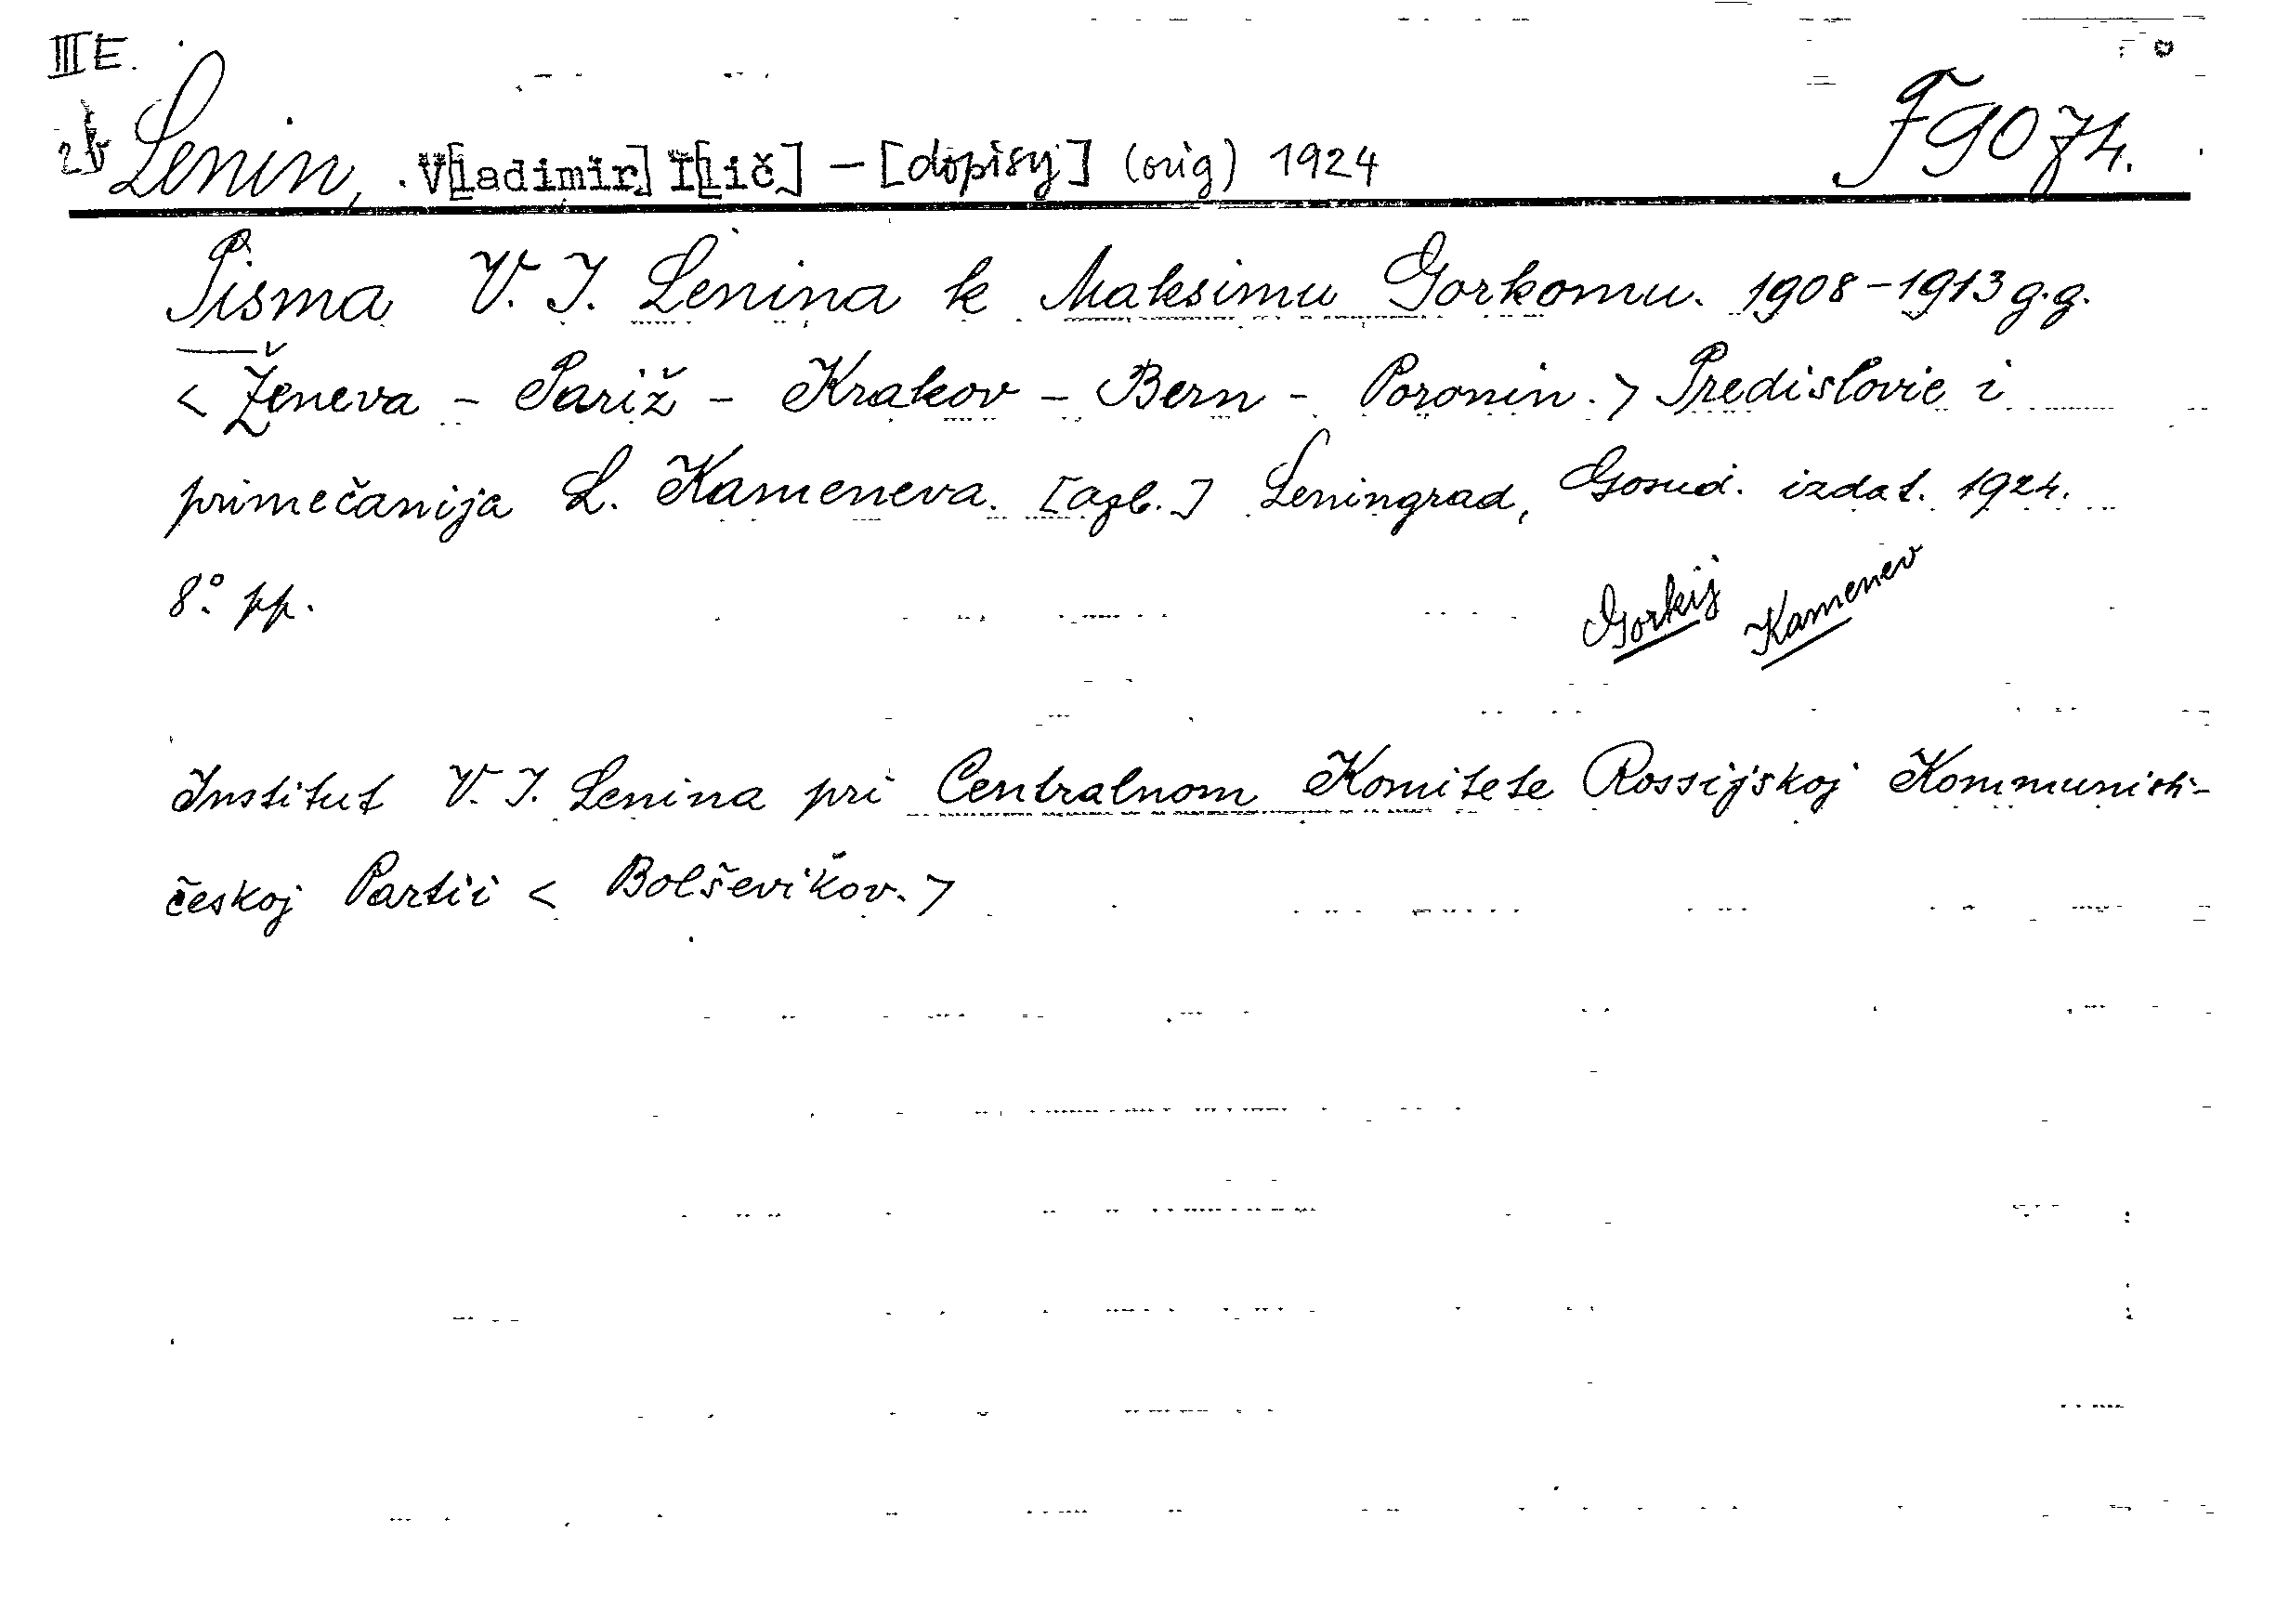 III E.
Lenin, V[ladimir] I[lič] – [dopisy] (orig) 1924
F 9074.
Pisma V. I. Lenina k Maksimu Gorkomu. 1908-1913 g.g.
< Ženeva - Pariž - Krakov - Bern - Poronin. > Predislovie i
primečanija L. Kameneva. [azb.] Leningrad, Gosud. izdat. 1924.
8°. pp.
Gorkij Kamenev
Institut V. I. Lenina pri Centralnom Komitete Rossijskoj Kommunisti-
českoj Partii < Bolševikov. >